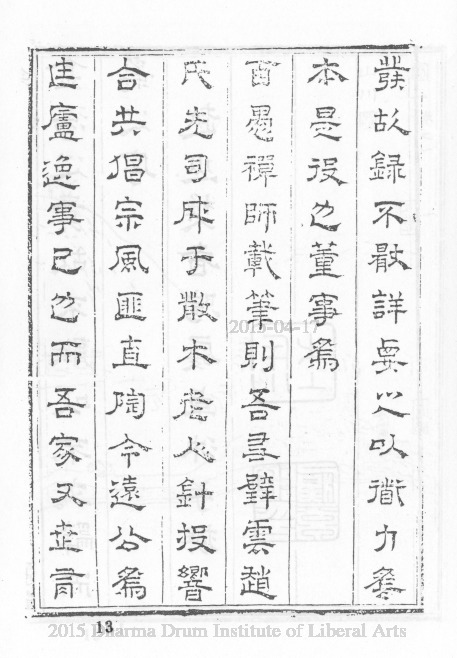 發故錄不厭詳要之以力
本是役也董事為
百愚禪師載筆則吾雲趙
氏先司成于散木老人針投響
合共倡宗風匪直陶令遠公為
匡廬逸事已也而吾家又
13
2015-04-17
2015 Dharma Drum Institute of Liberal Arts